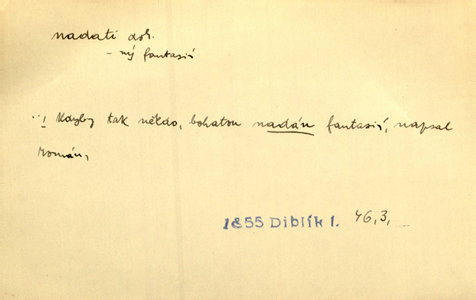 nadati dok.
– ný fantasií
..! Kdyby tak někdo, bohatou nadán fantasií, napsal
román,
1855 Diblík 1. 46,3,